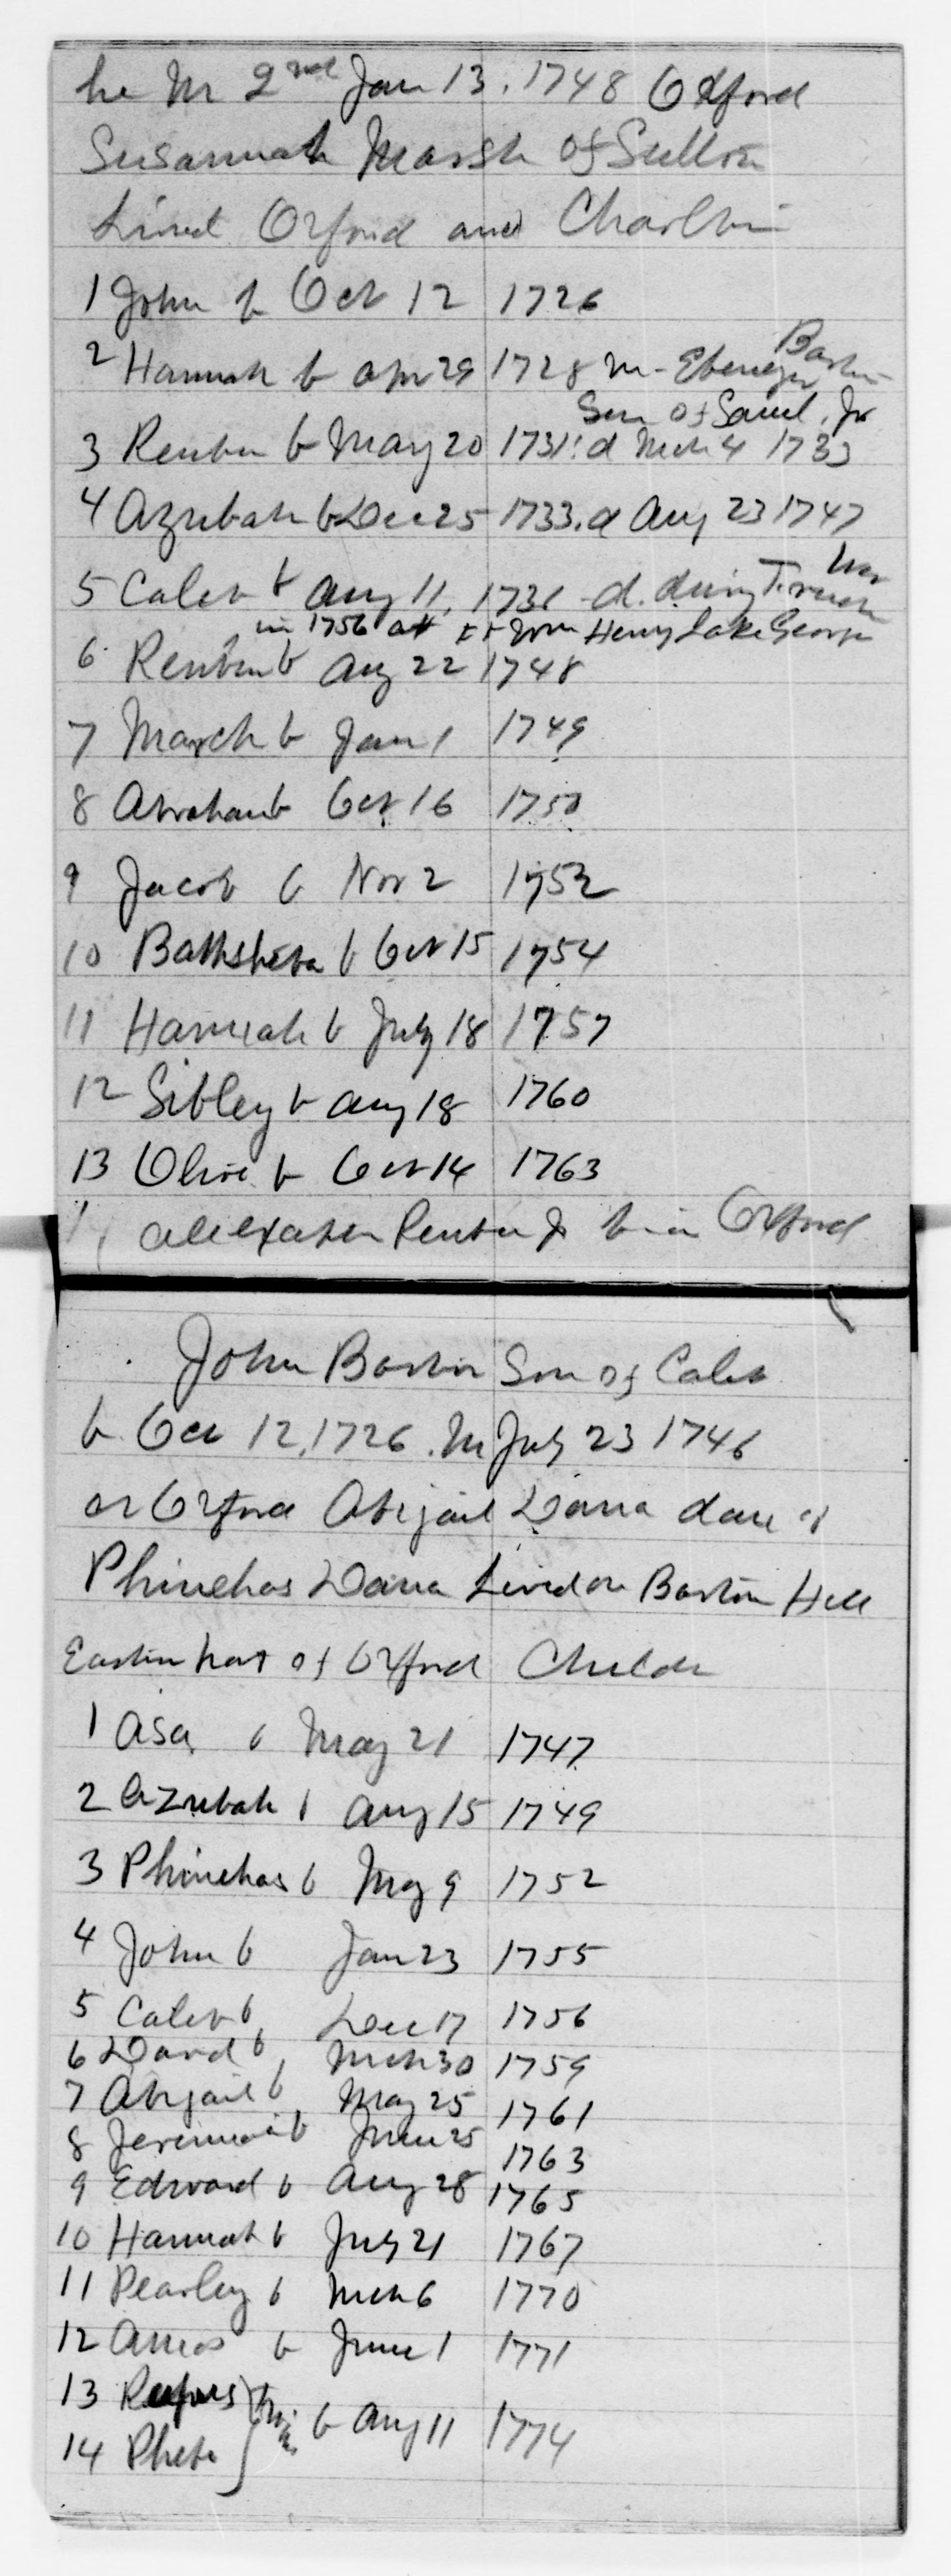 he M 2nd Jan 13, 1748 Oxford
Susannah Marsh of Sutton
Lived Oxford and Charlton
1 John b Oct 12 1726
2 Hannah b Apr 29 1728 M- Ebenezer Barton
Son of Saml. Jr
3 Reuben b May 20 1731. d Mch 4 1733
4 Azubah b Dec 25 1733. d Aug 23 1747
5 Caleb b Aug 11, 1736 - d. during French War
in 1756 at Ft Wm Henry Lake George
6 Reuben b Aug 22 1748
7 March b Jan 1 1749
8 Abraham b Oct 16 1750
9 Jacob b Nov 2 1752
10 Bathsheba b Oct 15 1754
11 Hannah b July 18 1757
12 Sibley b Aug 18 1760
13 Olive b Oct 14 1763
all except Reuben Jr b in Oxford
John Barton Son of Caleb
b. Oct 12, 1726. M July 23 1746
at Oxford Abigail Dana dau of
Phinehas Dana Lived on Barton Hill
Eastern part of Oxford Childr
1 Asa b May 21 1747
2 Azubah b Aug 15 1749
3 Phinehas b May 9 1752
4 John b Jan 23 1755
5 Caleb b Dec 17 1756
6 David b Mch 30 1759
7 Abigail b May 25 1761
8 Jeremiah b June 25 1763
9 Edward b Aug 28 1765
10 Hannah b July 21 1767
11 Pearley b Mch 6 1770
12 Amos b June 1 1771
13 Rufus } twins b Aug 11 1774
14 Phebe